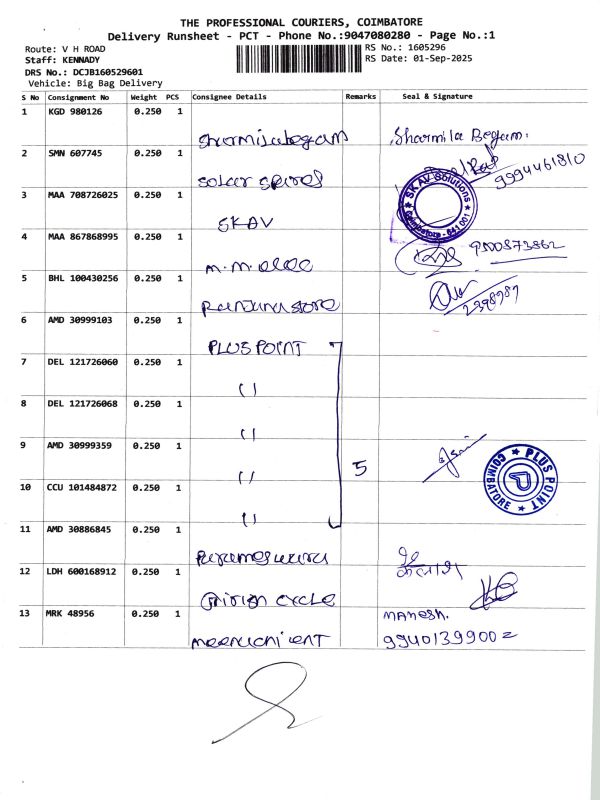 THE PROFESSIONAL COURIERS, COIMBATORE
Delivery Runsheet - PCT - Phone No.:9047080280 - Page No.:1
Route: V H ROAD
RS No.: 1605296
Staff: KENNADY
RS Date: 01-Sep-2025
DRS No.: DCJB160529601
Vehicle: Big Bag Delivery
S No Consignment No Weight PCS Consignee Details Remarks Seal & Signature
1 KGD 980126 0.250 1
Sharmilabegam Sharmila Begam.
2 SMN 607745 0.250 1
solar spires 9994461810
3 MAA 708726025 0.250 1
SKAV
SK AV Solutions
Coimbatore - 641 001
4 MAA 867868995 0.250 1
m.m. 9500873862
5 BHL 100430256 0.250 1
store 2398787
6 AMD 30999103 0.250 1
PLUS POINT
7 DEL 121726060 0.250 1
( )
8 DEL 121726068 0.250 1
( )
9 AMD 30999359 0.250 1
( ) 5
PLUS POINT
COIMBATORE
10 CCU 101484872 0.250 1
( )
11 AMD 30886845 0.250 1
12 LDH 600168912 0.250 1
cycle
13 MRK 48956 0.250 1
MAHESH.
99401399002